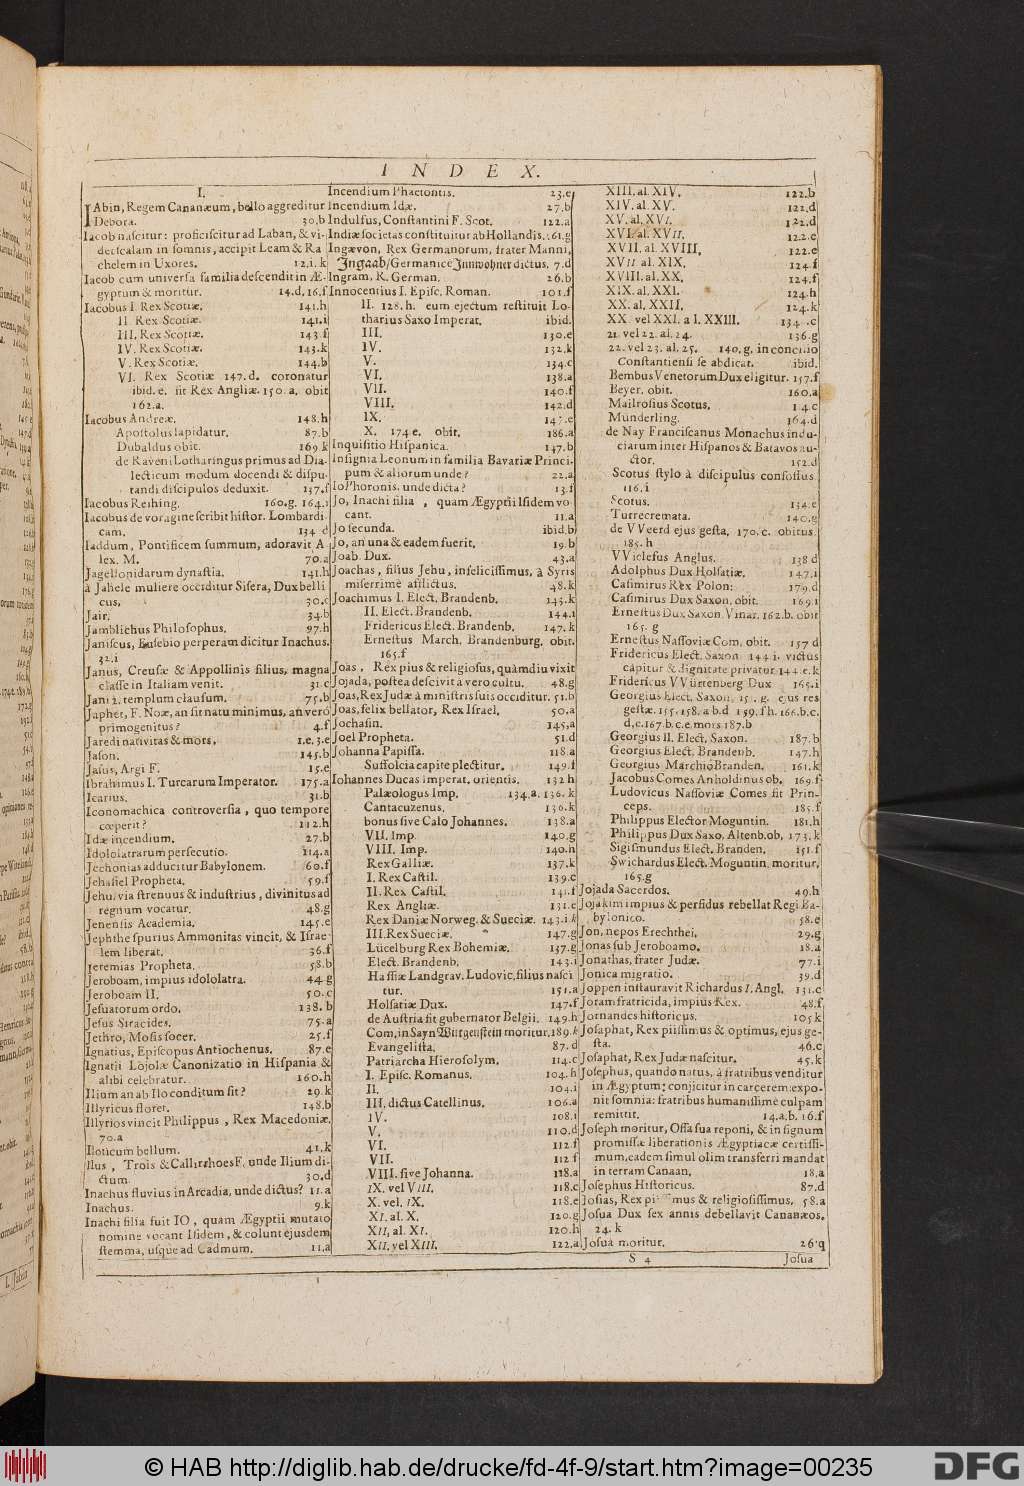 INDEX.
I.
IAbin, Regem Cananæum, bello aggreditur
Debora. 30.b
Iacob nascitur: proficiscitur ad Laban, & vi-
det scalam in somnis, accipit Leam & Ra
chelem in Uxores. 12.i.k
Iacob cum universa familia descendit in Æ-
gyptum & moritur. 14.d, 16.f
Iacobus I. Rex Scotiæ. 141.h
II Rex Scotiæ. 141.i
III. Rex Scotiæ. 143.f
IV. Rex Scotiæ. 143.k
V. Rex Scotiæ. 144.b
VI. Rex Scotiæ 147.d. coronatur
ibid. e. fit Rex Angliæ. 150.a. obit
162.a.
Iacobus Andreæ. 148.h
Apostolus lapidatur. 87.b
Dubaldus obit. 169.k
de Raveni Lotharingus primus ad Dia-
lecticum modum docendi & dispu-
tandi discipulos deduxit. 137.f
Iacobus Reihing. 160.g. 164.i
Iacobus de voragine scribit histor. Lombardi-
cam. 134 d
Iaddum, Pontificem summum, adoravit A
lex. M. 70.a
Jagellonidarum dynastia. 141.h
à Jahele muliere occiditur Sisera, Dux belli
cus, 30.c
Jair. 34.b
Jamblichus Philosophus. 97.h
Janiscus, Eusebio perperam dicitur Inachus.
32.i
Janus, Creusæ & Appollinis filius, magna
classe in Italiam venit. 31.c
Jani 2. templum clausum. 75.b
Japhet, F. Noæ, an sit natu minimus, an verò
primogenitus? 4.f
Jaredi nativitas & mors. 1.e.3.e
Jason. 145.b
Jasus, Argi F. 15.e
Ibrahimus I. Turcarum Imperator. 175.a
Icarius. 31.b
Iconomachica controversia, quo tempore
cœperit? 112.h
Idæ incendium. 27.b
Idololatrarum persecutio. 114.a
Jechonias adducitur Babylonem. 60.f
Jehasiel Propheta. 59.f
Jehu, via strenuus & industrius, divinitus ad
regnum vocatur. 48.g
Jenensis Academia. 145.e
Jephthe spurius Ammonitas vincit, & Israe-
lem liberat. 36.f
Jeremias Propheta. 58.b
Jeroboam, impius idololatra. 44.g
Jeroboam II. 50.c
Jesuatorum ordo. 138.b
Jesus Siracides. 75.a
Jethro, Mosis socer. 25.f
Ignatius, Episcopus Antiochenus. 87.e
Ignatij Lojolæ Canonizatio in Hispania &
alibi celebratur. 160.h
Ilium an ab Ilo conditum sit? 29.k
Illyricus floret. 148.b
Illyrios vincit Philippus, Rex Macedoniæ.
70.a
Iloticum bellum. 41.k
Ilus, Trois & Callirrhoes F. unde Ilium di-
ctum. 30.d
Inachus fluvius in Arcadia, unde dictus? 11.a
Inachus. 9.k
Inachi filia fuit IO, quam Ægyptii mutato
nomine vocant Isidem, & colunt ejusdem
stemma, usque ad Cadmum. 11.a
Incendium Phaetontis. 23.e
Incendium Idæ. 27.b
Indulfus, Constantini F. Scot. 122.a
Indiæ societas constituitur ab Hollandis. 161.g
Ingævon, Rex Germanorum, frater Manni,
Ingaab/Germanice Innwohner dictus. 7.d
Ingram. R. German. 26.b
Innocentius I. Episc. Roman. 101.f
II. 128.h. eum ejectum restituit Lo-
tharius Saxo Imperat. ibid.
III. 130.e
IV. 132.k
V. 134.c
VI. 138.a
VII. 140.f
VIII. 142.d
IX.
X. 174 e. obit. 186.a
Inquisitio Hispanica. 147.b
Insignia Leonum in familia Bavariæ Princi-
pum & aliorum unde? 22.a
Io Phoronis, unde dicta? 13.f
Jo, Inachi filia, quam Ægyptii Isidem vo-
cant. 11.a
Jo secunda. ibid.b
Jo, an una & eadem fuerit. 19.b
Joab. Dux. 43.a
Joachas, filius Jehu, infelicissimus, à Syris
miserrimè afflictus. 48.k
Joachimus I. Elect. Brandenb. 143.k
II. Elect. Brandenb. 144.i
Fridericus Elect. Brandenb. 147.k
Ernestus March. Brandenburg. obit.
165.f
Joas, Rex pius & religiosus, quàmdiu vixit
Jojada, postea descivit à vero cultu. 48.g
Joas, Rex Judæ à ministris suis occiditur. 51.b
Joas, felix bellator, Rex Israel. 50.a
Jochasin. 145.a
Joel Propheta. 51.d
Johanna Papissa. 118.a
Suffolcia capite plectitur. 149.f
Iohannes Ducas imperat. orientis. 132 h
Palæologus Imp. 134.a. 136.k
Cantacuzenus. 136.k
bonus sive Calo Johannes. 138.a
VII. Imp. 140.g
VIII. Imp. 140.h
Rex Galliæ. 137.k
I. Rex Castil. 139.c
II. Rex Castil. 141.f
Rex Angliæ. 131.e
Rex Daniæ Norweg. & Sueciæ. 143.i.k
III. Rex Sueciæ. 147.g
Lücelburg Rex Bohemiæ. 137.g
Elect. Brandenb. 143.i
Hassiæ Landgrav. Ludovic. filius nasci
tur. 151.a
Holsatiæ Dux. 147.f
de Austria fit gubernator Belgii. 149.h
Com. in Sayn Witgenstein moritur. 189.k
Evangelista. 87.d
Patriarcha Hierosolym. 114.c
I. Episc. Romanus. 104.h
II. 104.i
III. dictus Catellinus. 106.a
IV. 108.i
V. 110.d
VI. 112.f
VII. 112 f
VIII. sive Johanna. 118.a
IX. vel VIII. 118.c
X. vel. IX. 118.e
XI. al. X. 120.g
XII. al. XI. 120.h
XII. vel XIII. 122.a
XIII. al. XIV. 122.b
XIV. al. XV. 122.d
XV. al. XVI. 122.d
XVI. al. XVII. 122.e
XVII. al. XVIII. 122.e
XVII al. XIX. 124.f
XVIII. al. XX. 124.f
XIX. al. XXI. 124.h
XX. al. XXII. 124.k
XX vel XXI. al. XXIII. 134.c
21. vel 22. al. 24. 136.g
22. vel 23. al. 25. 140.g. in concilio
Constantiensi se abdicat. ibid.
Bembus Venetorum Dux eligitur. 157.f
Beyer. obit. 160.a
Mailrosius Scotus. 114 c
Münderling. 164.d
de Nay Franciscanus Monachus indu-
ciarum inter Hispanos & Batavos au-
ctor. 152.d
Scotus stylo à discipulus confossus.
116.i
Scotus. 134.e
Turrecremata. 140.g
de VVeerd ejus gesta. 170.c. obitus.
185.h
VViclefus Anglus. 138 d
Adolphus Dux Holsatiæ. 147.i
Casimirus Rex Polon: 179.d
Casimirus Dux Saxon. obit. 169.i
Ernestus Dux Saxon. Vinar. 162.b. obit
165.g
Ernestus Nassoviæ Com. obit. 157 d
Fridericus Elect. Saxon 144 i. victus
capitur & dignitate privatur 144.e.k
Fridericus VVürtenberg Dux 165.i
Georgius Elect. Saxon. 151.g. ejus res
gestæ. 155.158.a.b.d 159.f.h.166.b.c.
d.c.167.b.c.e. mors 187.b
Georgius II. Elect. Saxon. 187.b
Georgius Elect. Brandenb. 147.h
Georgius Marchio Branden. 161.k
Jacobus Comes Anholdinus ob. 169.f
Ludovicus Nassoviæ Comes fit Prin-
ceps. 185.f
Philippus Elector Moguntin. 181.h
Philippus Dux Saxo. Altenb. ob. 173.k
Sigismundus Elect. Branden. 151.f
Swichardus Elect. Moguntin. moritur.
165.g
Jojada Sacerdos. 49.h
Jojakim impius & perfidus rebellat Regi Ba-
bylonico. 58.e
Jon, nepos Erechthei. 29.g
Jonas sub Jeroboamo. 18.a
Jonathas, frater Judæ. 77.i
Jonica migratio. 39.d
Joppen instauravit Richardus I. Angl. 131.c
Joram fratricida, impius Rex. 48.f
Jornandes historicus. 105 k
Josaphat, Rex piissimus & optimus, ejus ge-
sta. 46.c
Josaphat, Rex Judæ nascitur. 45.k
Josephus, quando natus, à fratribus venditur
in Ægyptum: conjicitur in carcerem: expo-
nit somnia: fratribus humanissimè culpam
remittit. 14.a.b. 16.f
Joseph moritur, Ossa sua reponi, & in signum
promissæ liberationis Ægyptiacæ certissi-
mum, eadem simul olim transferri mandat
in terram Canaan. 18.a
Josephus Historicus. 87.d
Josias, Rex piissimus & religiosissimus. 58.a
Josua Dux sex annis debellavit Cananæos.
24.k
Josua moritur. 26.g
S 4 Josua
© HAB http://diglib.hab.de/drucke/fd-4f-9/start.htm?image=00235
DFG